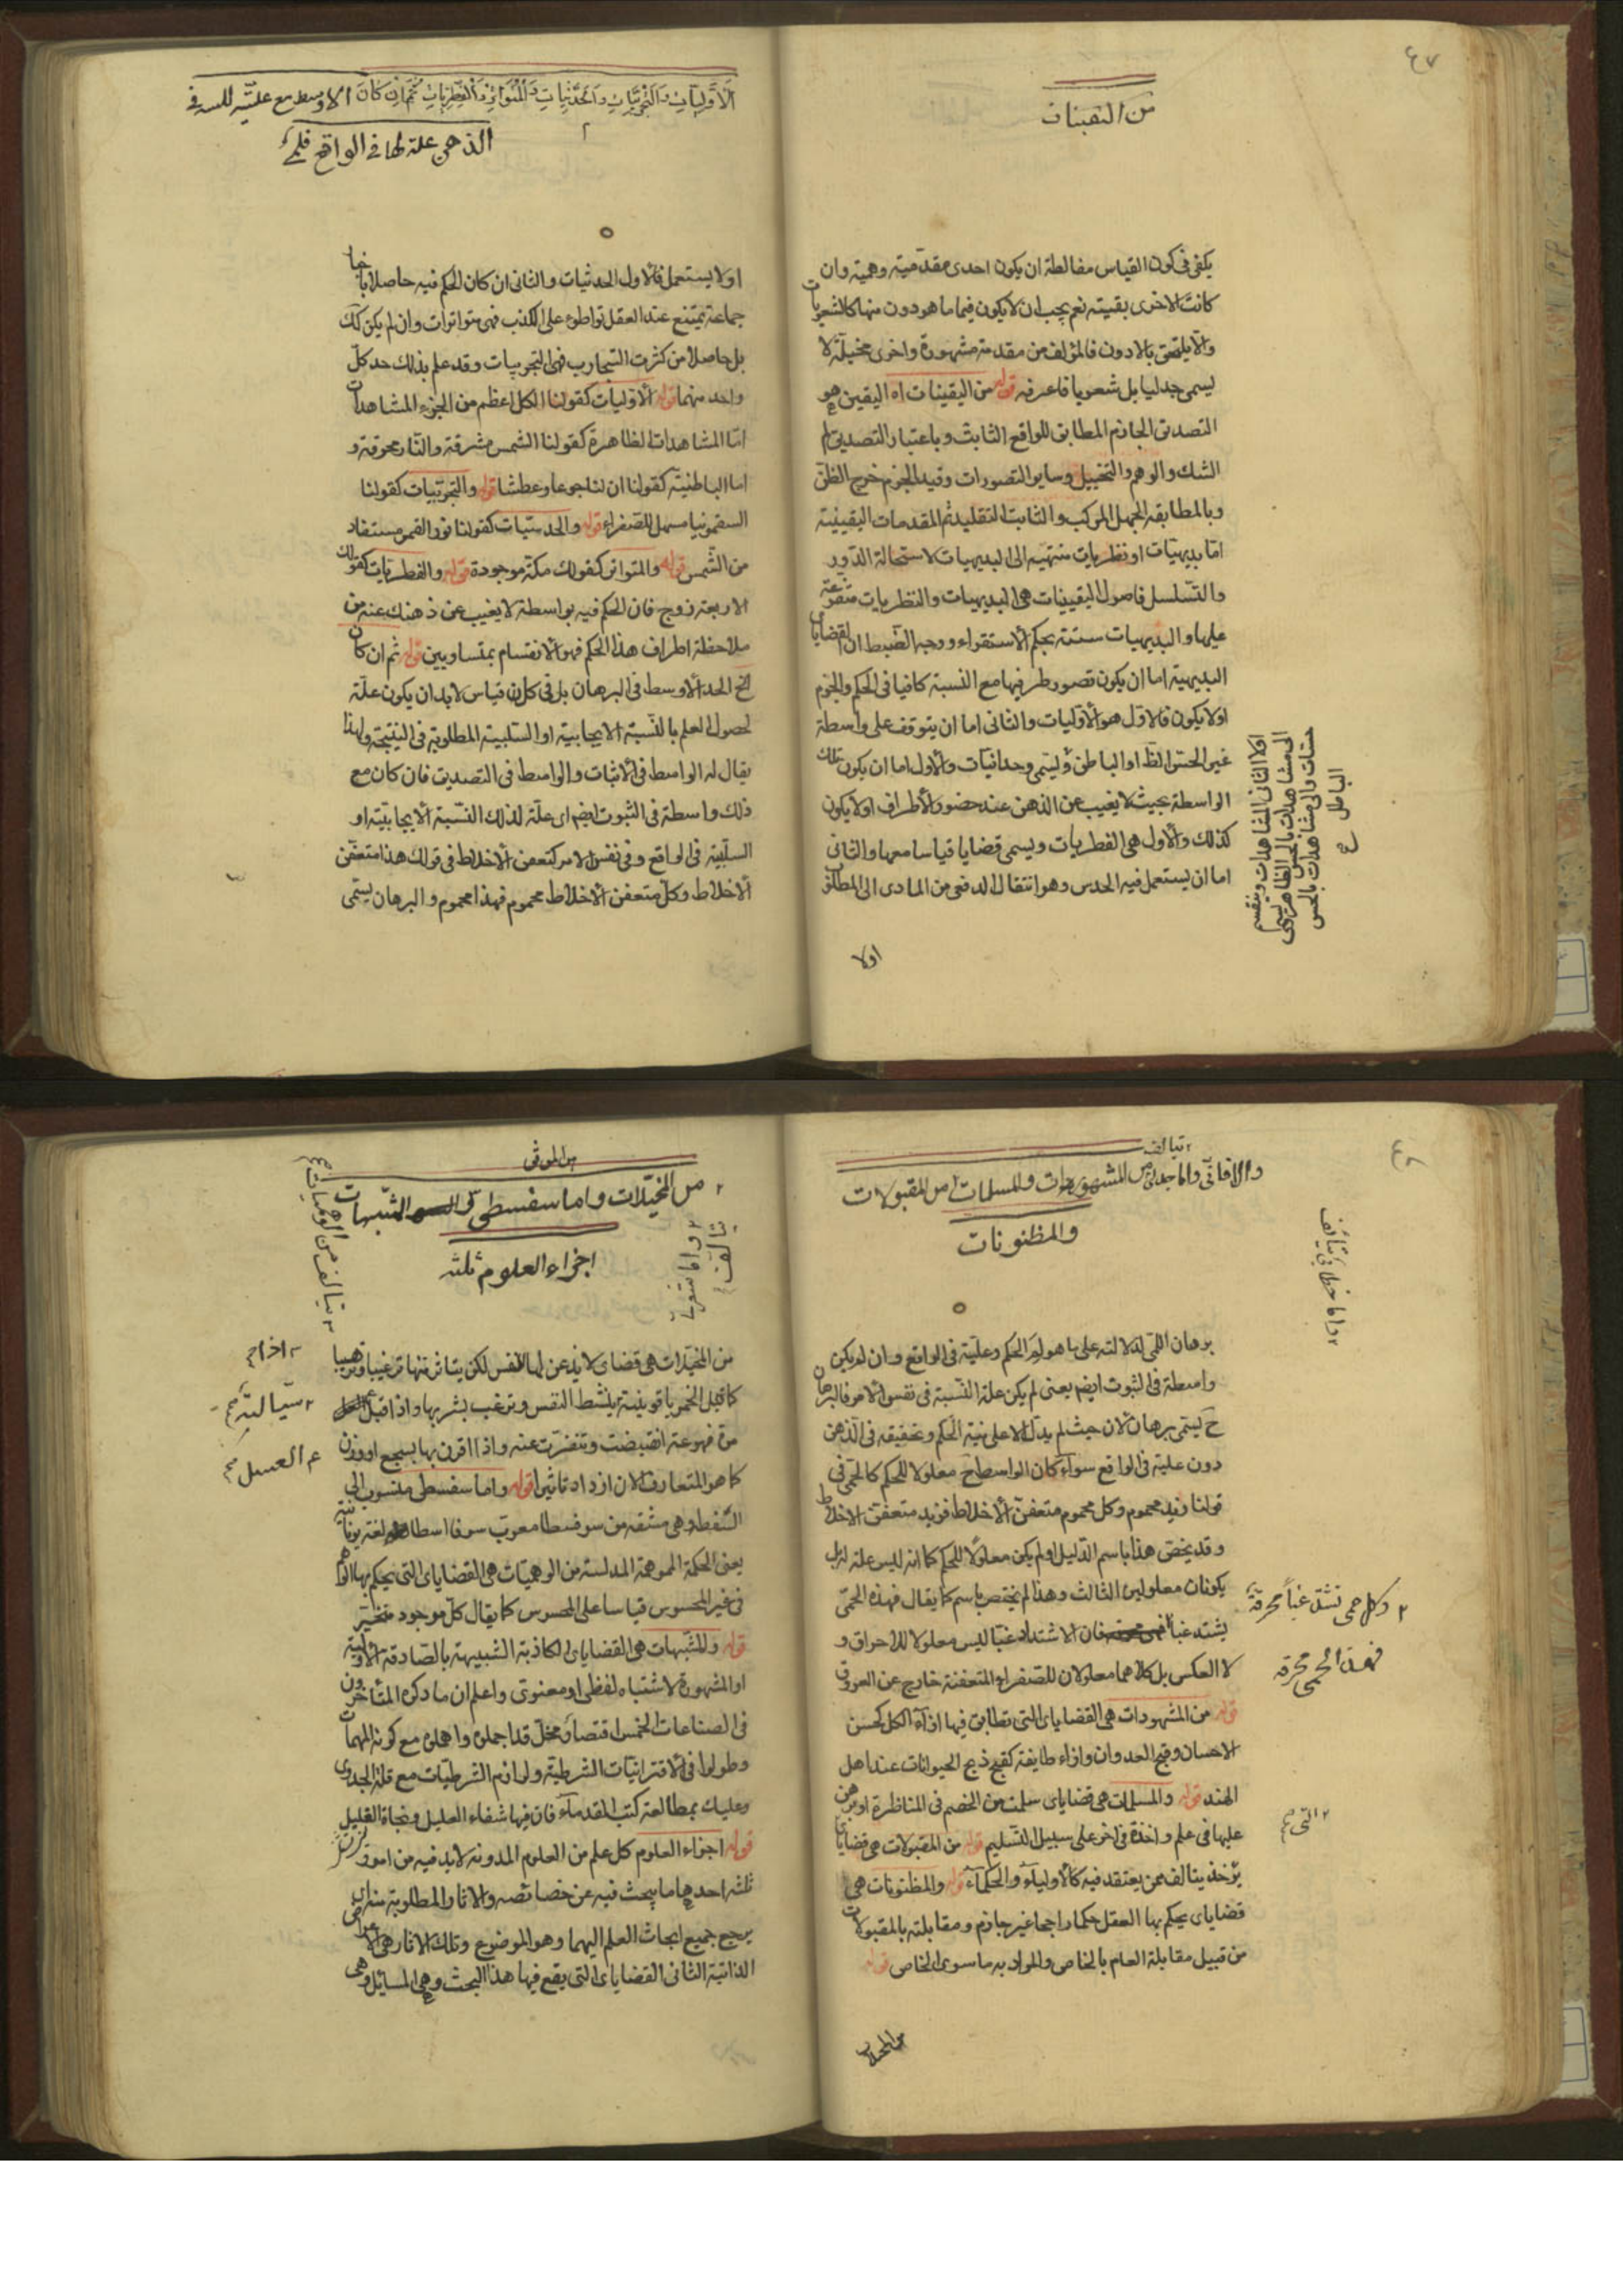 ٤٧
من اليقينات
يكفى فى كون القياس مغالطة ان يكون احدى مقدمتيه وهمية وان
كانت الاخرى يقينية نعم يجب ان لا يكون فيها ما هو دون منها كالشعريات
والا يلحق بالادون فالمؤلف من مقدمة مشهورة واخرى مخيلة لا
يسمى جدليا بل شعريا فاعرفه قوله من اليقينات اه اليقين هو
التصديق الجازم المطابق للواقع الثابت وباعتبار التصديق لم
الشك والوهم والتخييل وساير التصورات وقيد الجزم خرج الظن
وبالمطابقة الجهل المركب والثابت التقليد ثم المقدمات اليقينية
اما بديهيات او نظريات منتهية الى البديهيات لاستحالة الدور
والتسلسل فاصول اليقينيات هى البديهيات والنظريات متفرعة
عليها والبديهيات ستة بحكم الاستقراء ووجه الضبط ان القضايا
البديهية اما ان يكون تصور طرفيها مع النسبة كافيا فى الحكم والجزم
اولا يكون فالاول هو الاوليات والثانى اما ان يتوقف على واسطة
غير الحس الظ او الباطن ويسمى وجدانيات والاول اما ان يكون تلك
الواسطة بحيث لا يغيب عن الذهن عند حضور الاطراف اولا يكون
كذلك والاول هى الفطريات ويسمى قضايا قياساتها معها والثانى
اما ان يستعمل فيه الحدس وهو انتقال الدفعى من المبادى الى المطلق
اولا
اولا الثانى المشاهدات وينقسم
الى مشاهدات بالحس الظاهر وتسمى
حسيات والى مشاهدات بالحس
الباطن
الاوليات والتجربيات والحدسيات والمتواترات والفطريات ثم ان كان الاوسط مع عليته للنسبة فى
الذهن علة لها فى الواقع فلمى
اولا يستعمل فالاول الحدسيات والثانى ان كان الحكم فيه حاصلا باخبار
جماعة يمتنع عند العقل تواطئ على الكذب فهى متواترات وان لم يكن كك
بل حاصلا من كثرت التجارب فهى التجربيات وقد علم بذلك حد كل
واحد منهما قوله الاوليات كقولنا الكل اعظم من الجزء المشاهدات
اما المشاهدات الظاهرة كقولنا الشمس مشرقة والنار محرقة و
اما الباطنية كقولنا ان لنا جوعا وعطشا قوله والتجربيات كقولنا
السقمونيا مسهل للصفراء قوله والحدسيات كقولنا نور القمر مستفاد
من الشمس قوله والمتواتر كقولك مكة موجودة قوله والفطريات كقولك
الاربعة زوج فان الحكم فيه بواسطة لا يغيب عن ذهنك عنه من
ملاحظة اطراف هذا الحكم فهو الانقسام بمتساويين قوله ثم ان كان
الخ الحد الاوسط فى البرهان بل فى كل قياس لا بد ان يكون علة
لحصول العلم بالنسبة الايجابية او السلبية المطلوبة فى النتيجة ولهذا
يقال له الواسط فى الاثبات والواسط فى التصديق فان كان مع
ذلك واسطة فى الثبوت ايضا اى علة لذلك النسبة الايجابية او
السلبية فى لواقع وفى نفس الامر كتعفن الاخلاط فى قولك هذا متعفن
الاخلاط وكل متعفن الاخلاط محموم فهذا محموم والبرهان يسمى
٤٨
يتالف
والا فانى واما جدلى من المشهورات والمسلمات من المقبولات
والمظنونات
واما خطابى يتالف
برهان اللمى لدلالته على ما هو لم الحكم وعليته فى الواقع وان لم يكن
واسطة فى الثبوت ايضا يعنى لم يكن علة النسبة فى نفس الامر فالبرهان
ح يسمى برهان الان حيث لم يدل الا على انية الحكم وتحقيقه فى الذهن
دون علية فى الواقع سواء كان الواسط ح معلولا للحكم كالحمى فى
قولنا زيد محموم وكل محموم متعفن الاخلاط فزيد متعفن الاخلاط
وقد يخص هذا باسم الدليل او لم يكن معلولا للحكم كما انه ليس علة له بل
يكونان معلولين الثالث وهذا لم يختص باسم كما يقال فهذه الحمى
يشتد غبا فان الاشتداد غبا ليس معلولا للاحراق و
لا العكس بل كلاهما معلولان للصفراء المتعفنة خارج عن العروق
قوله من المشهورات هى القضاياى التى تطابق فيها اراء الكل كحسن
الاحسان وقبح العدوان واراء طايفة كقبح ذبح الحيوانات عند اهل
الهند قوله والمسلمات هى قضاياى سلمت من الخصم فى المناظرة او برهن
عليها فى علم واخذة فى اخر على سبيل التسليم قوله من المقبولات هى قضاياى
يؤخذ يتالف ممن يعتقد فيه كالاولياء والحكماء قوله والمظنونات هى
قضاياى يحكم بها العقل حكما راجحا غير جازم ومقابلته بالمقبولات
من قبيل مقابلة العام بالخاص والمراد به ما سوى الخاص قوله
من المخيلات
وكل حمى تشتد غبا محرقة
فهذه الحمى محرقة
التى
من الموتى
من المخيلات واما سفسطى المشبهات
اجزاء العلوم ثلثة
يتالف من الوهميات
واما شعرى
يتالف
من المخيلات هى قضاياى لا يذعن لها النفس لكن يتاثر منها ترغيبا وترهيبا
كما قيل الخمر ياقوتية ينشط النفس وترغب بشربها واذا قيل
مرة مهوعة انقبضت وتنفرت عنه واذا اقرن بها بسجع او وزن
كما هو المتعارف الان ازداد تاثيرا قوله واما سفسطى منسوب الى
السفسطة وهى مشتقة من سوفسطا معرب سوفا اسطا لغة يونانية
يعنى الحكمة المموهة المدلسة من الوهميات هى القضاياى التى يحكم بها الوهم
فى غير المحسوس قياسا على المحسوس كما يقال كل موجود متحيز
قوله والمشبهات هى القضاياى الكاذبة الشبيهة بالصادقة الاولية
او المشهورة لاشتباه لفظى او معنوى واعلم ان ما ذكره المتاخرون
فى الصناعات الخمس اقتصار مخل قد اجملوه واهملوه مع كونه المهمات
وطولوا فى الاقترانيات الشرطية ولوازم الشرطيات مع قلة الجدوى
وعليك بمطالعة كتب المقدماء فان فيها شفاء العليل ونجاة الغليل
قوله اجزاء العلوم كل علم من العلوم المدونة لا بد فيه من امور
ثلثه احدها ما يبحث فيه عن خصائصه والاثار المطلوبة منه
يرجع جميع ابحاث العلم اليهما وهو الموضوع وتلك الاثار هى الاعراض
الذاتية الثانى القضاياى التى يقع فيها هذا البحث وهى المسائل وهى
اذا
سيالة
العسل